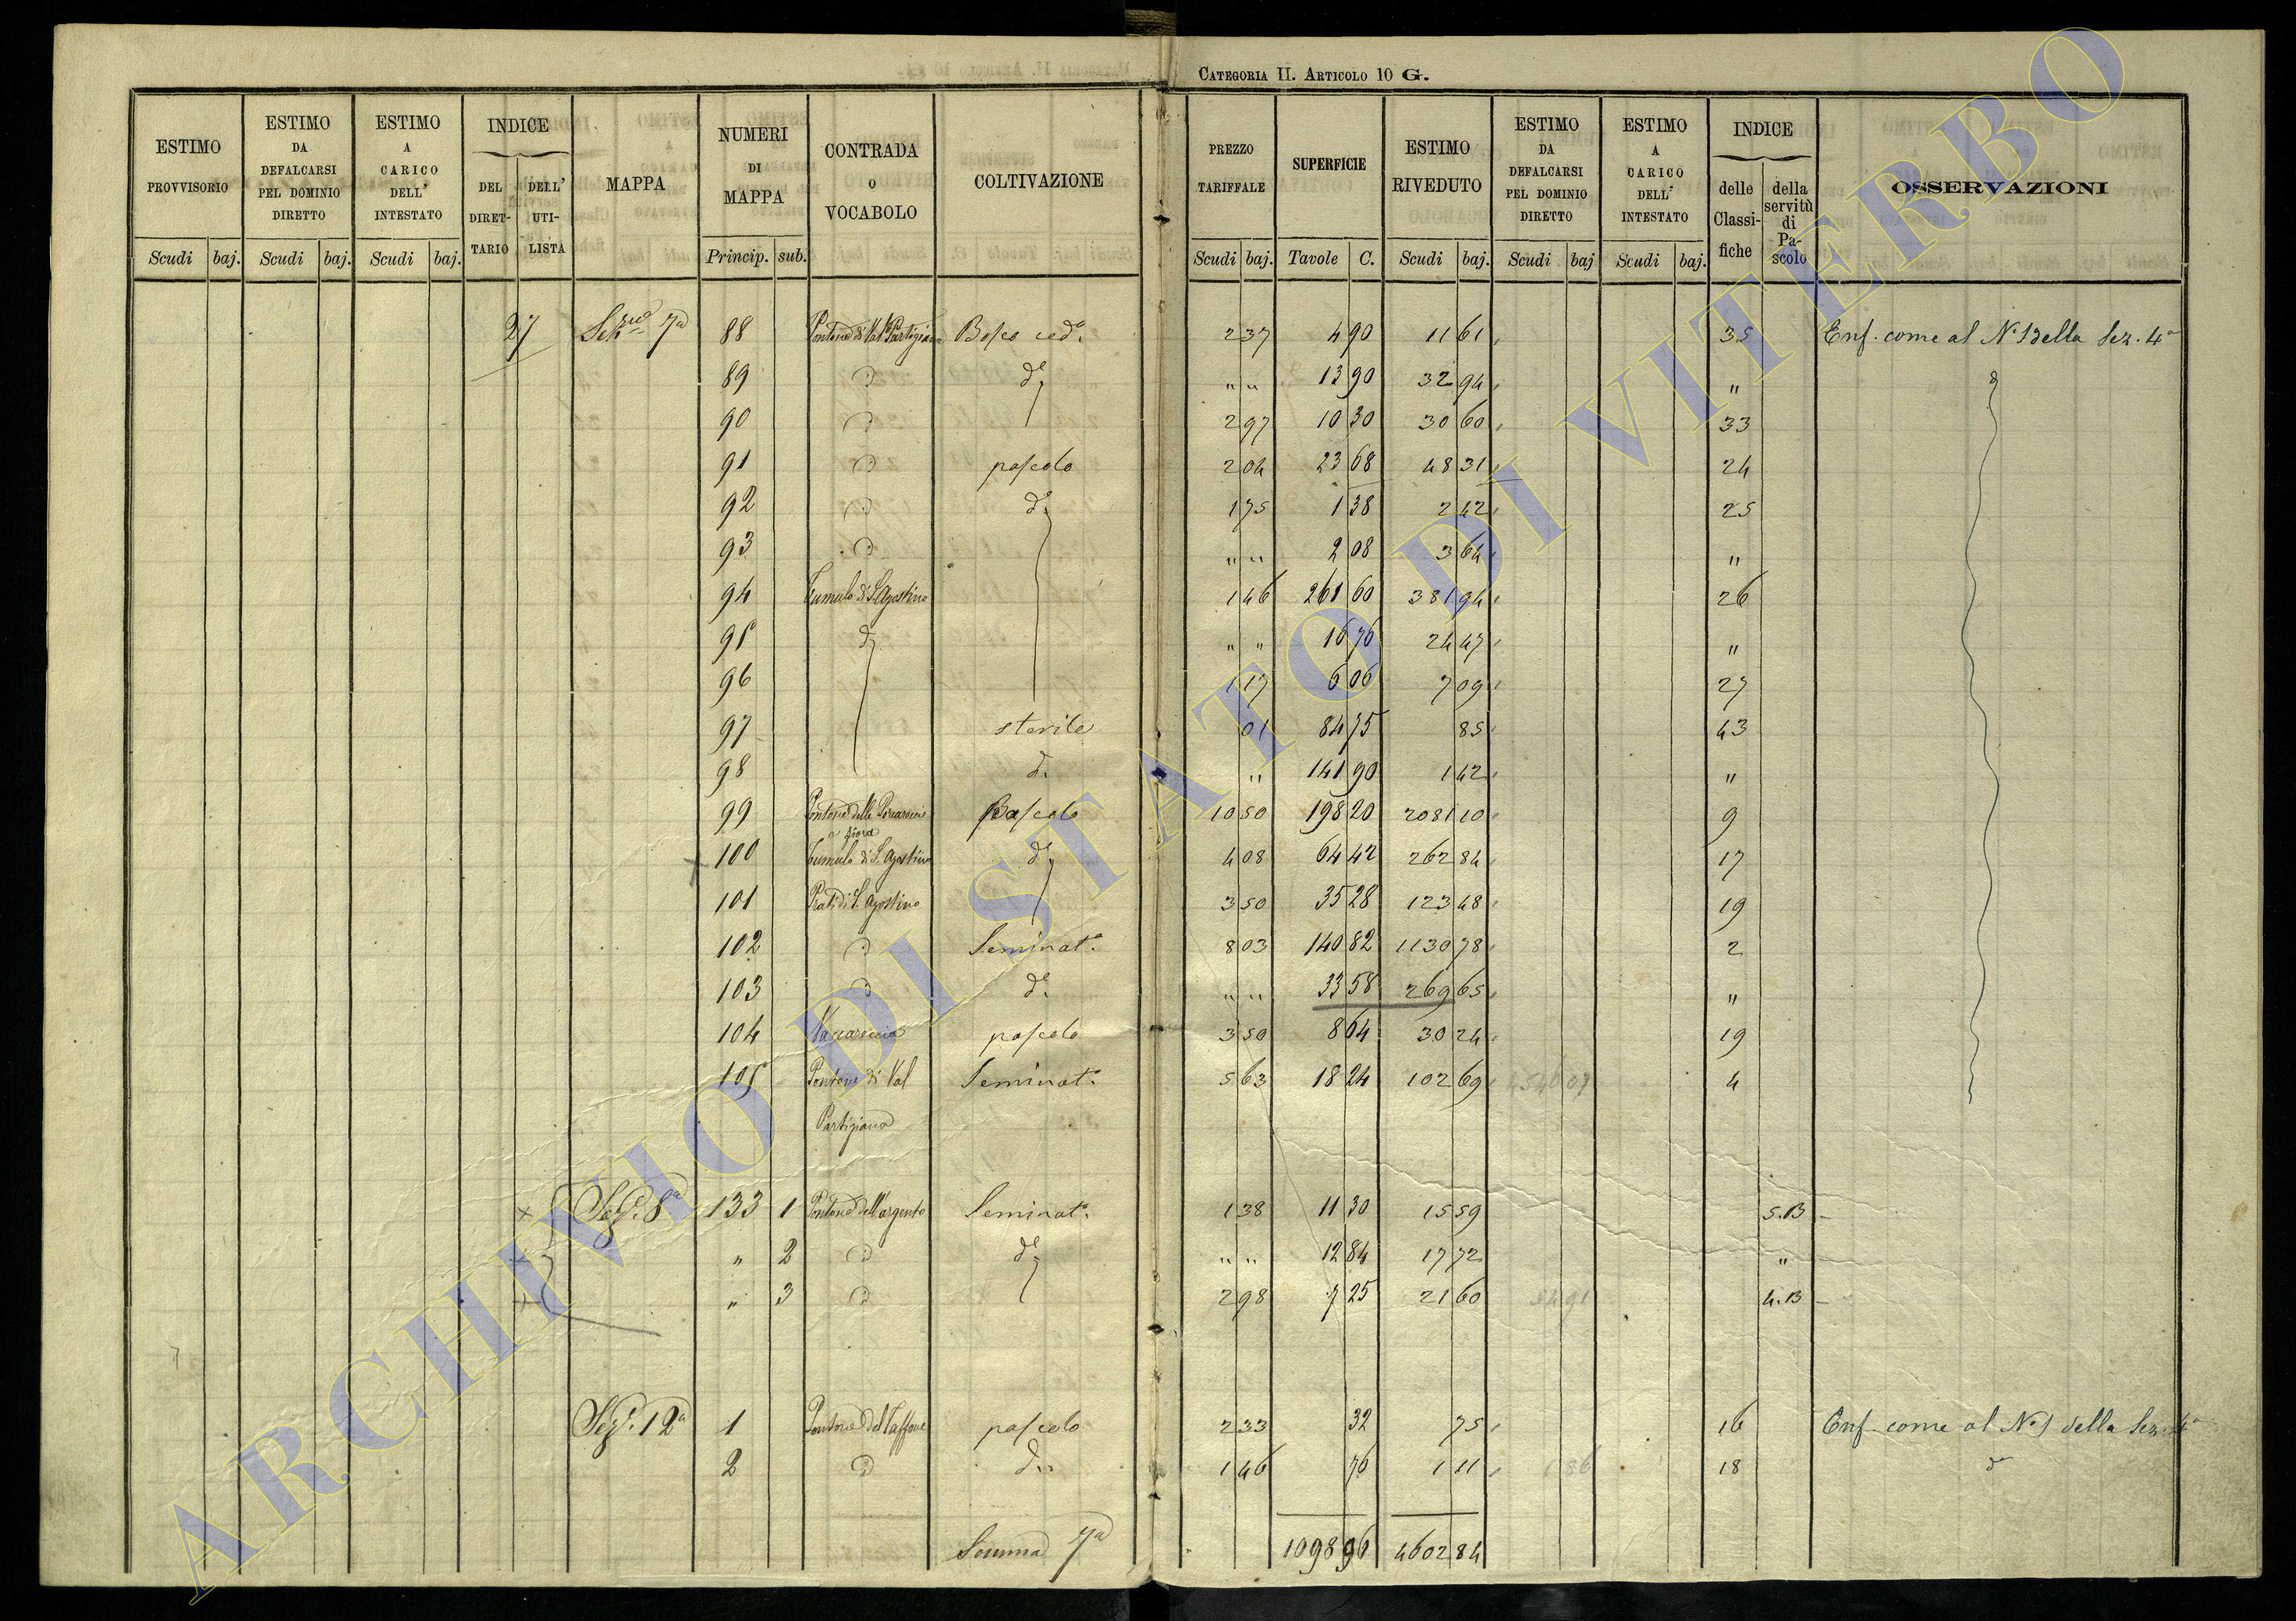 CATEGORIA II. ARTICOLO 10 G.
ESTIMO PROVVISORIO Scudi baj.
ESTIMO DA DEFALCARSI PEL DOMINIO DIRETTO Scudi baj.
ESTIMO A CARICO DELL' INTESTATO Scudi baj.
INDICE DEL DIRET-TARIO DELL' UTI-LISTA
MAPPA
NUMERI DI MAPPA Princip. sub.
CONTRADA O VOCABOLO
COLTIVAZIONE
PREZZO TARIFFALE Scudi baj.
SUPERFICIE Tavole C.
ESTIMO RIVEDUTO Scudi baj.
ESTIMO DA DEFALCARSI PEL DOMINIO DIRETTO Scudi baj
ESTIMO A CARICO DELL' INTESTATO Scudi baj.
INDICE delle Classi-fiche della servitù di Pa-scolo
OSSERVAZIONI
27 Sezne 7a 88 Pontone di Val Partigiana Bosco ced. 2 37 4 90 11 61 35 Enf. come al No 1 della Sez. 4a
89 D do 13 90 32 94 "
90 D 2 97 10 30 30 60 33
91 D pascolo 2 04 23 68 48 31 24
92 D do 1 75 1 38 2 42 25
93 D " " 2 08 3 64 "
94 Tumulo di S. Agostino 1 46 261 60 381 94 26
95 do " " 16 76 24 47 "
96 1 17 6 06 7 09 27
97 sterile 01 84 75 85 43
98 do " 141 90 1 42 "
99 Pontone delle a fiora Pascolo 10 50 198 20 2081 10 9
100 Tumulo di S. Agostino do 4 08 64 42 262 84 17
101 Prati di S. Agostino 3 50 35 28 123 48 19
102 D Seminato. 8 03 140 82 1130 78 2
103 D do " " 33 58 269 65 "
104 Vaccareccia pascolo 3 50 8 64 30 24 19
105 Pontone di Val Seminato. 5 63 18 24 102 69 4
Partigiana
Sez. 8a 133 1 Pontone dell'argento Seminato. 1 38 11 30 15 59 5.B
" 2 D do " " 12 84 17 72 "
" 3 D 2 98 7 25 21 60 54 91 4.B
Sez. 12a 1 Pontone del Taffone pascolo 2 33 32 75 16 Enf. come al No 1 della Sez. 4a
2 D do 1 46 76 1 11 1 86 18 d
Somma 7a 1098 96 4602 84
ARCHIVIO DI STATO DI VITERBO